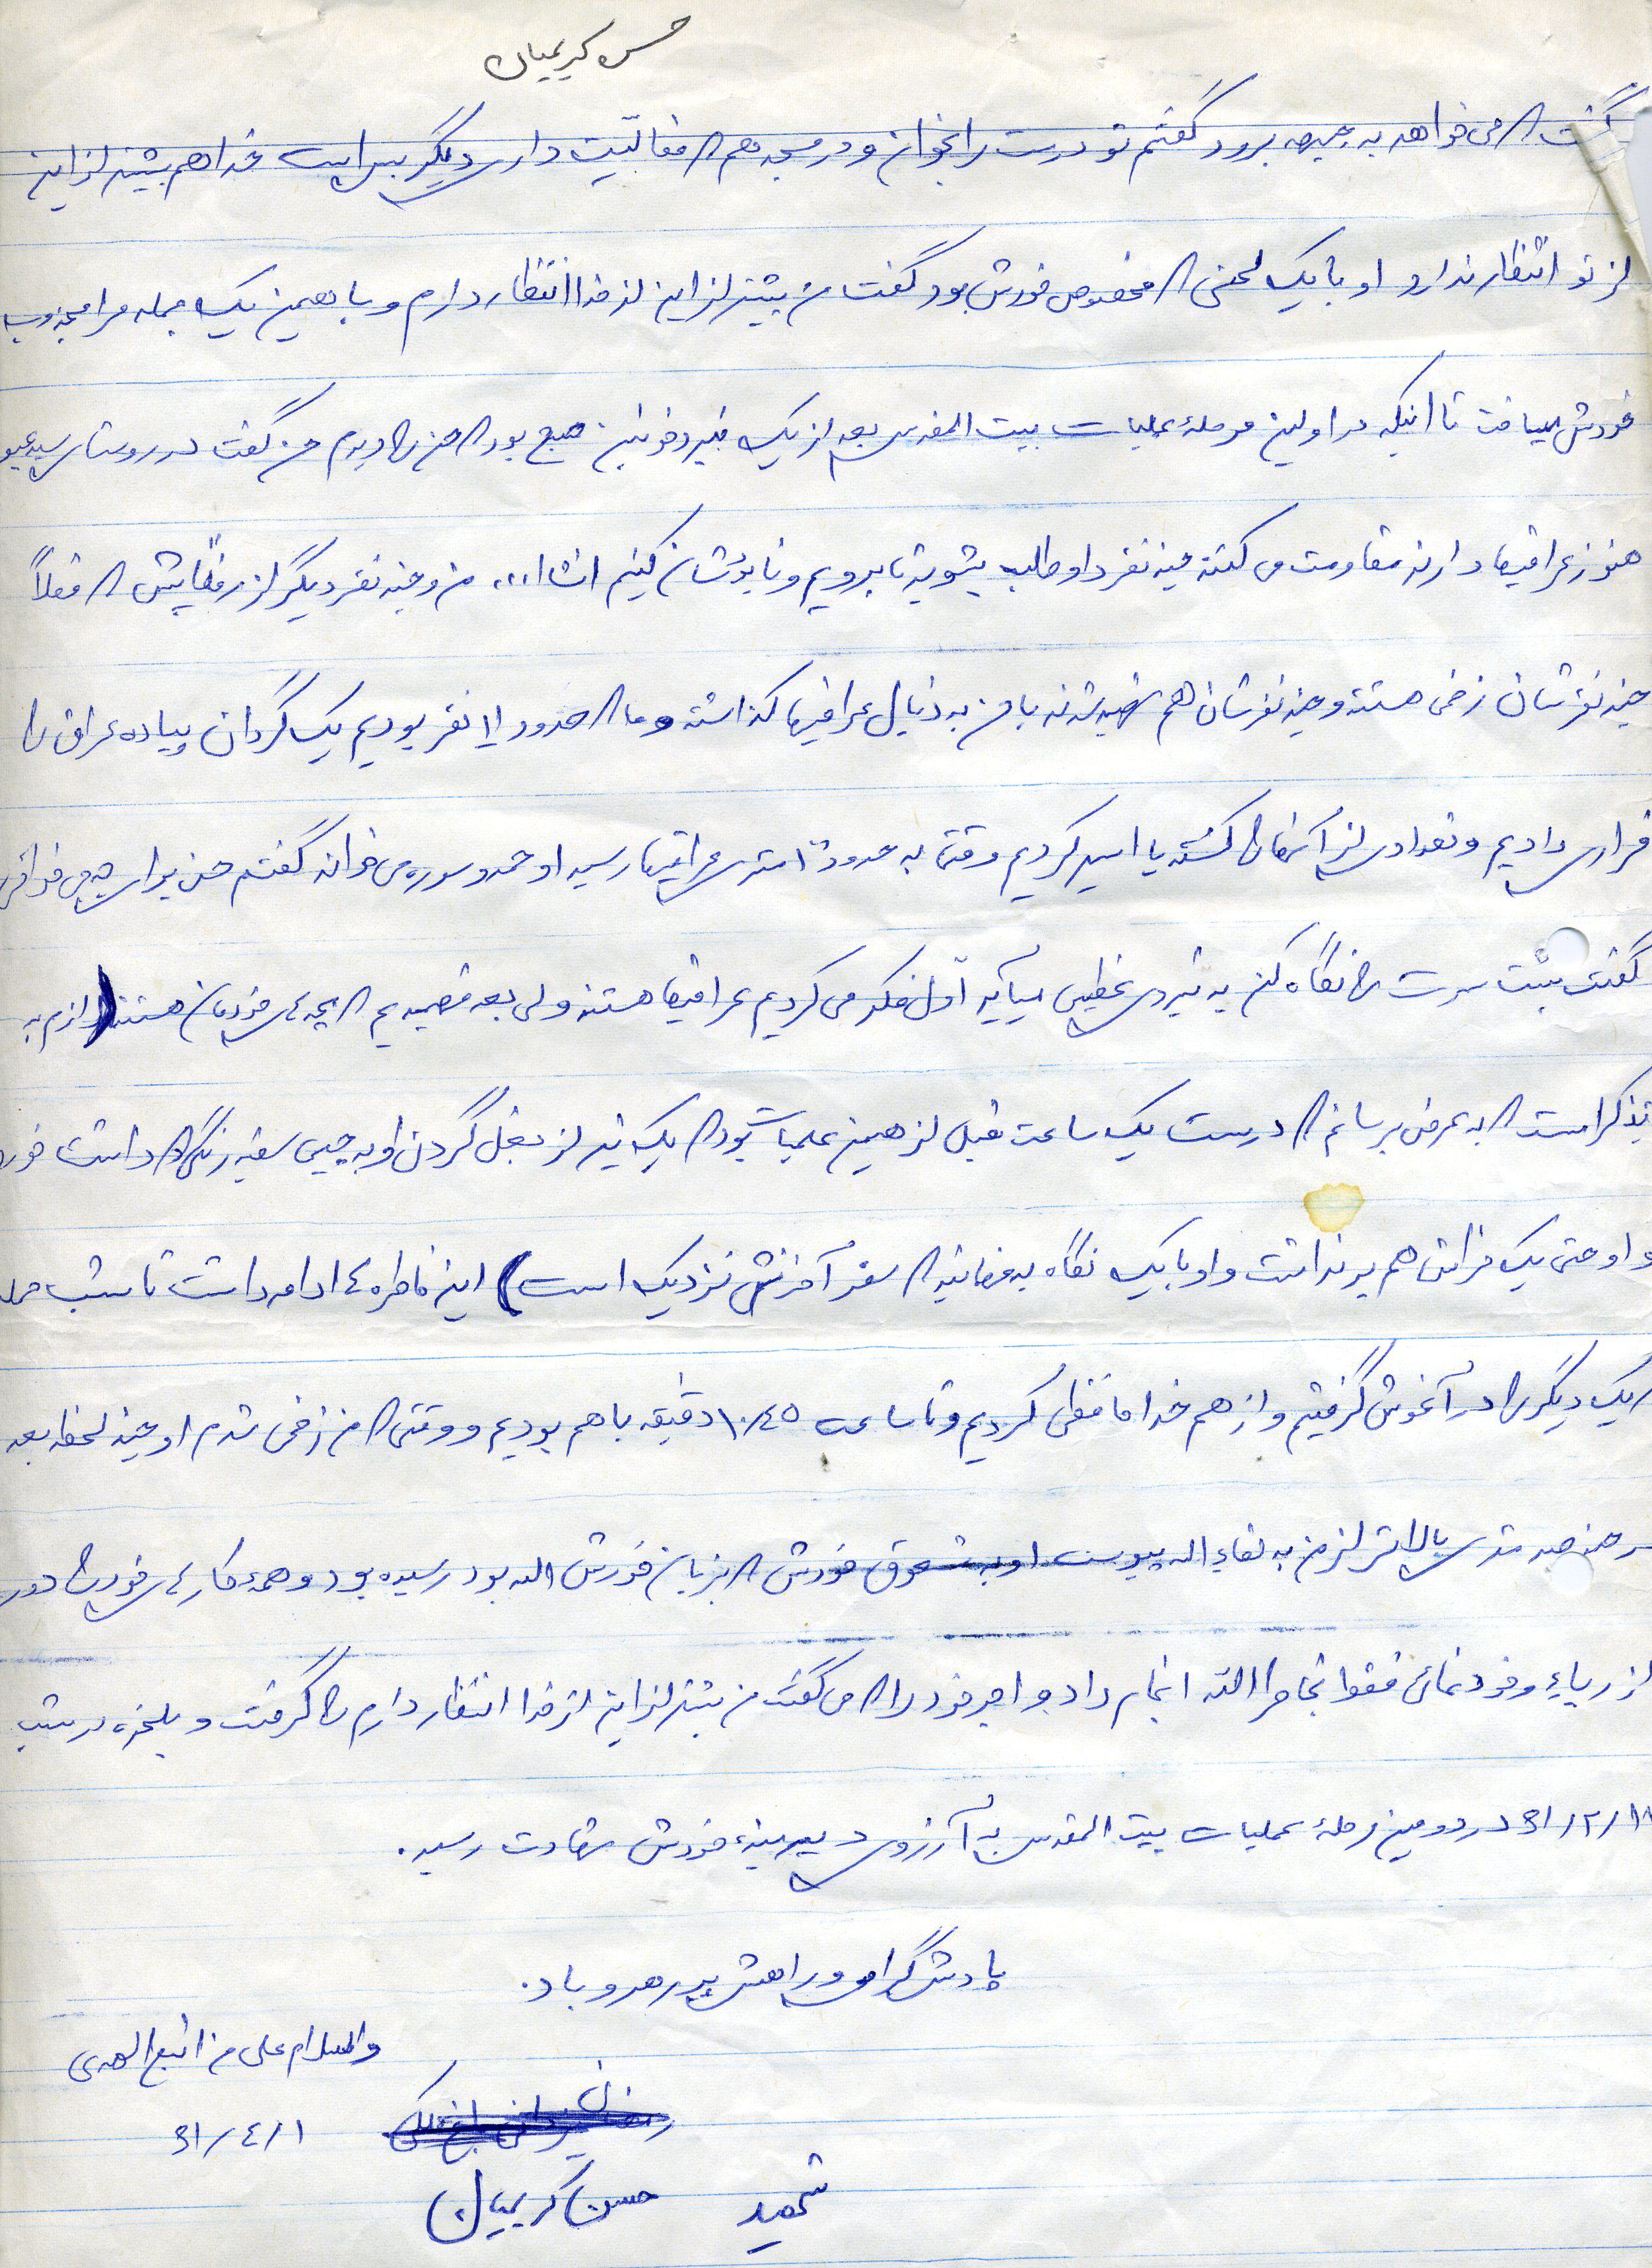 حسن کریمیان
گفت که می خواهد به جبهه برود گفتم تو درست را بخوان و در مسجد هم که فعالیت داری دیگر بس است خدا هم بیشتر از این
از تو انتظار ندارد او با یک لحنی که مخصوص خودش بود گفت من بیشتر از این از خدا انتظار دارم و با همین یک جمله مرا مجذوب
خودش میساخت تا اینکه در اولین مرحله عملیات بیت المقدس بعد از یک نبرد خونین صبح بود که حسن را دیدم حسن گفت در روستای سید عبود
هنوز عراقیها دارند مقاومت می کنند چند نفر داوطلب بشوید تا برویم و نابودشان کنیم انشاا... من و چند نفر دیگر از رفقایش که فعلاً
چند نفرشان زخمی هستند و چند نفرشان هم شهید شدند با من به دنبال عراقیها گذاشته و ما که حدود ۱۱ نفر بودیم یک گردان پیاده عراق را
فراری دادیم و تعدادی از آنها را کشته یا اسیر کردیم وقتی به حدود ۱۰ متری عراقیها رسید او حمد و سوره می خواند گفتم حسن برای چه می خوانی
گفت پشت سرت را نگاه کن یه نیروی عظیمی میآید اول فکر می کردیم عراقیها هستند ولی بعد فهمیدیم که بچه های خودمان هستند (لازم به
تذکر است که به عرض برسانم که درست یک ساعت قبل از همین عملیات بود که یک تیر از بغل گردن او به چپی سفید رنگی که داشت خورد
و او حتی یک خراش هم برنداشت و او با یک نگاه به من فهماند که سفر آخرتش نزدیک است) این خاطره ها ادامه داشت تا شب حمله
که یک دیگر را در آغوش گرفتیم و از هم خداحافظی کردیم و تا ساعت ۱۰/۴۵ دقیقه با هم بودیم و وقتی که من زخمی شدم او چند لحظه بعد
در چند صد متری بالاتر از من به لقاء اله پیوست او به معشوق خودش که بزبان خودش اله بود رسیده بود و همه کارهای خودش را دور
از ریاء و خودنمائی فقط بخاطر الله انجام داد و اجر خود را که می گفت من بیشتر از این از خدا انتظار دارم را گرفت و بلخره در شب
۶۱/۲/۱۷ در دومین مرحله عملیات بیت المقدس به آرزوی دیرینه خودش شهادت رسید.
یادش گرامی و راهش پر رهرو باد.
والسلام علی من اتبع الهدی
۶۱/۴/۱
شهید حسن کریمیان